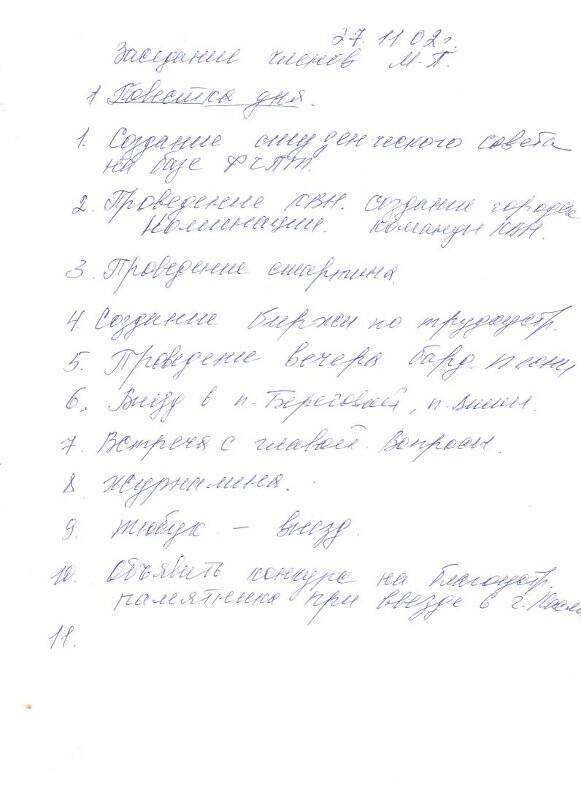 27. 11 02 г.
Заседание членов М.П.
1 Повестка дня.
1. Создание студенческого совета
на базе ФЧПТ.
2. Проведение КВН. Создание городск
Номинации. Команды КВН.
3. Проведение стартина.
4. Создание биржи по трудоустр.
5. Проведение вечера бард. песни
6. Выезд в п. Береговой, п. Вишн.
7. Встреча с главой. Вопросы.
8. Журналина.
9. Тюбук – выезд.
10. Объявить конкурс на благоустр.
памятника при въезде в г. Касли
11.